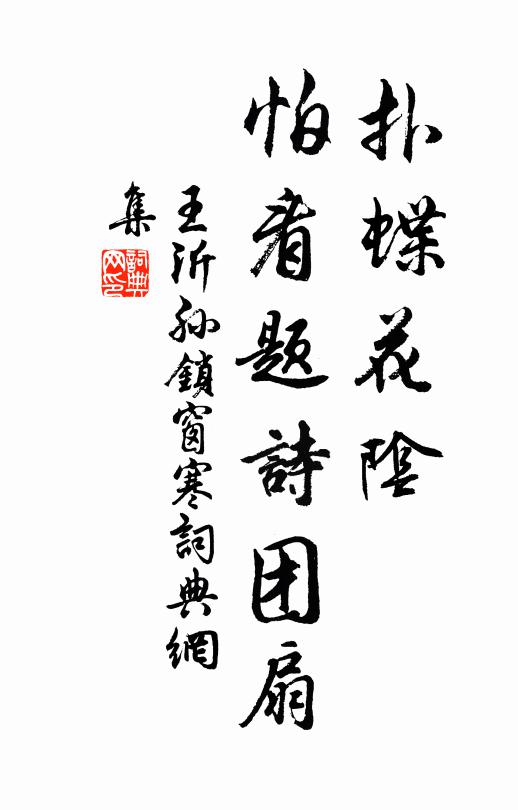 扑蝶花陰
怕看題詩团扇
王沂孙鎖窗寒詞典網
集
詞典网印